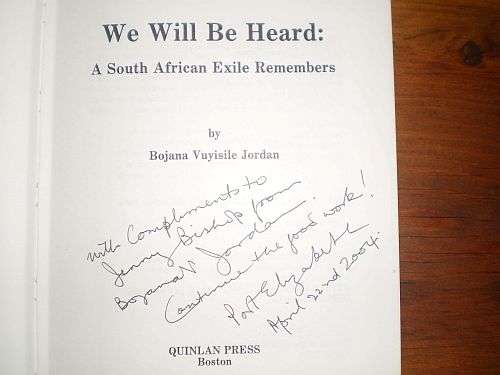 We Will Be Heard:
A South African Exile Remembers
by
Bojana Vuyisile Jordan
with Compliments to
Jenny Bishop from
Bojana V Jordan.
Continue the good work!
Port Elizabeth
April 22nd 2004.
QUINLAN PRESS
Boston